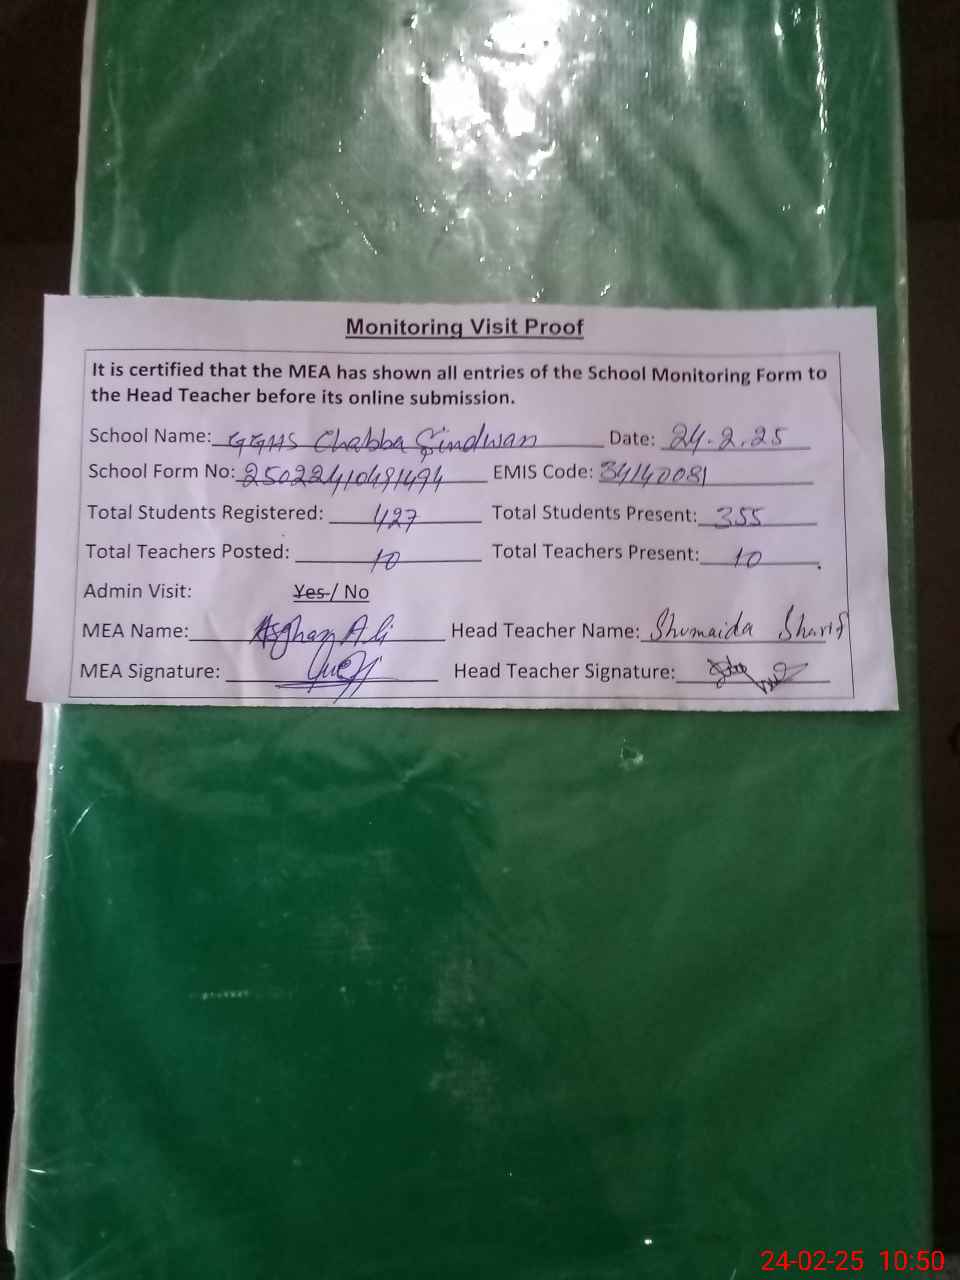 Monitoring Visit Proof
It is certified that the MEA has shown all entries of the School Monitoring Form to
the Head Teacher before its online submission.
School Name: GGHS Chabba Sindwan Date: 24.2.25
School Form No: 25022410491494 EMIS Code: 34140081
Total Students Registered: 427 Total Students Present: 355
Total Teachers Posted: 10 Total Teachers Present: 10
Admin Visit: Yes / No
MEA Name: Asghar Ali Head Teacher Name: Shumaida Sharif
MEA Signature: Head Teacher Signature:
24-02-25 10:50